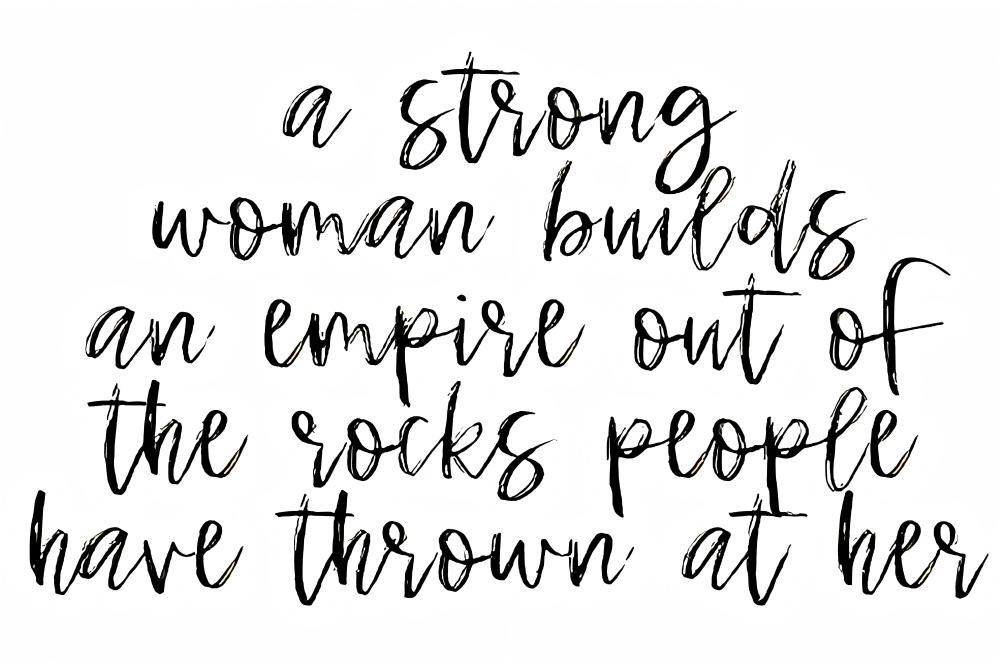 a strong
woman builds
an empire out of
the rocks people
have thrown at her